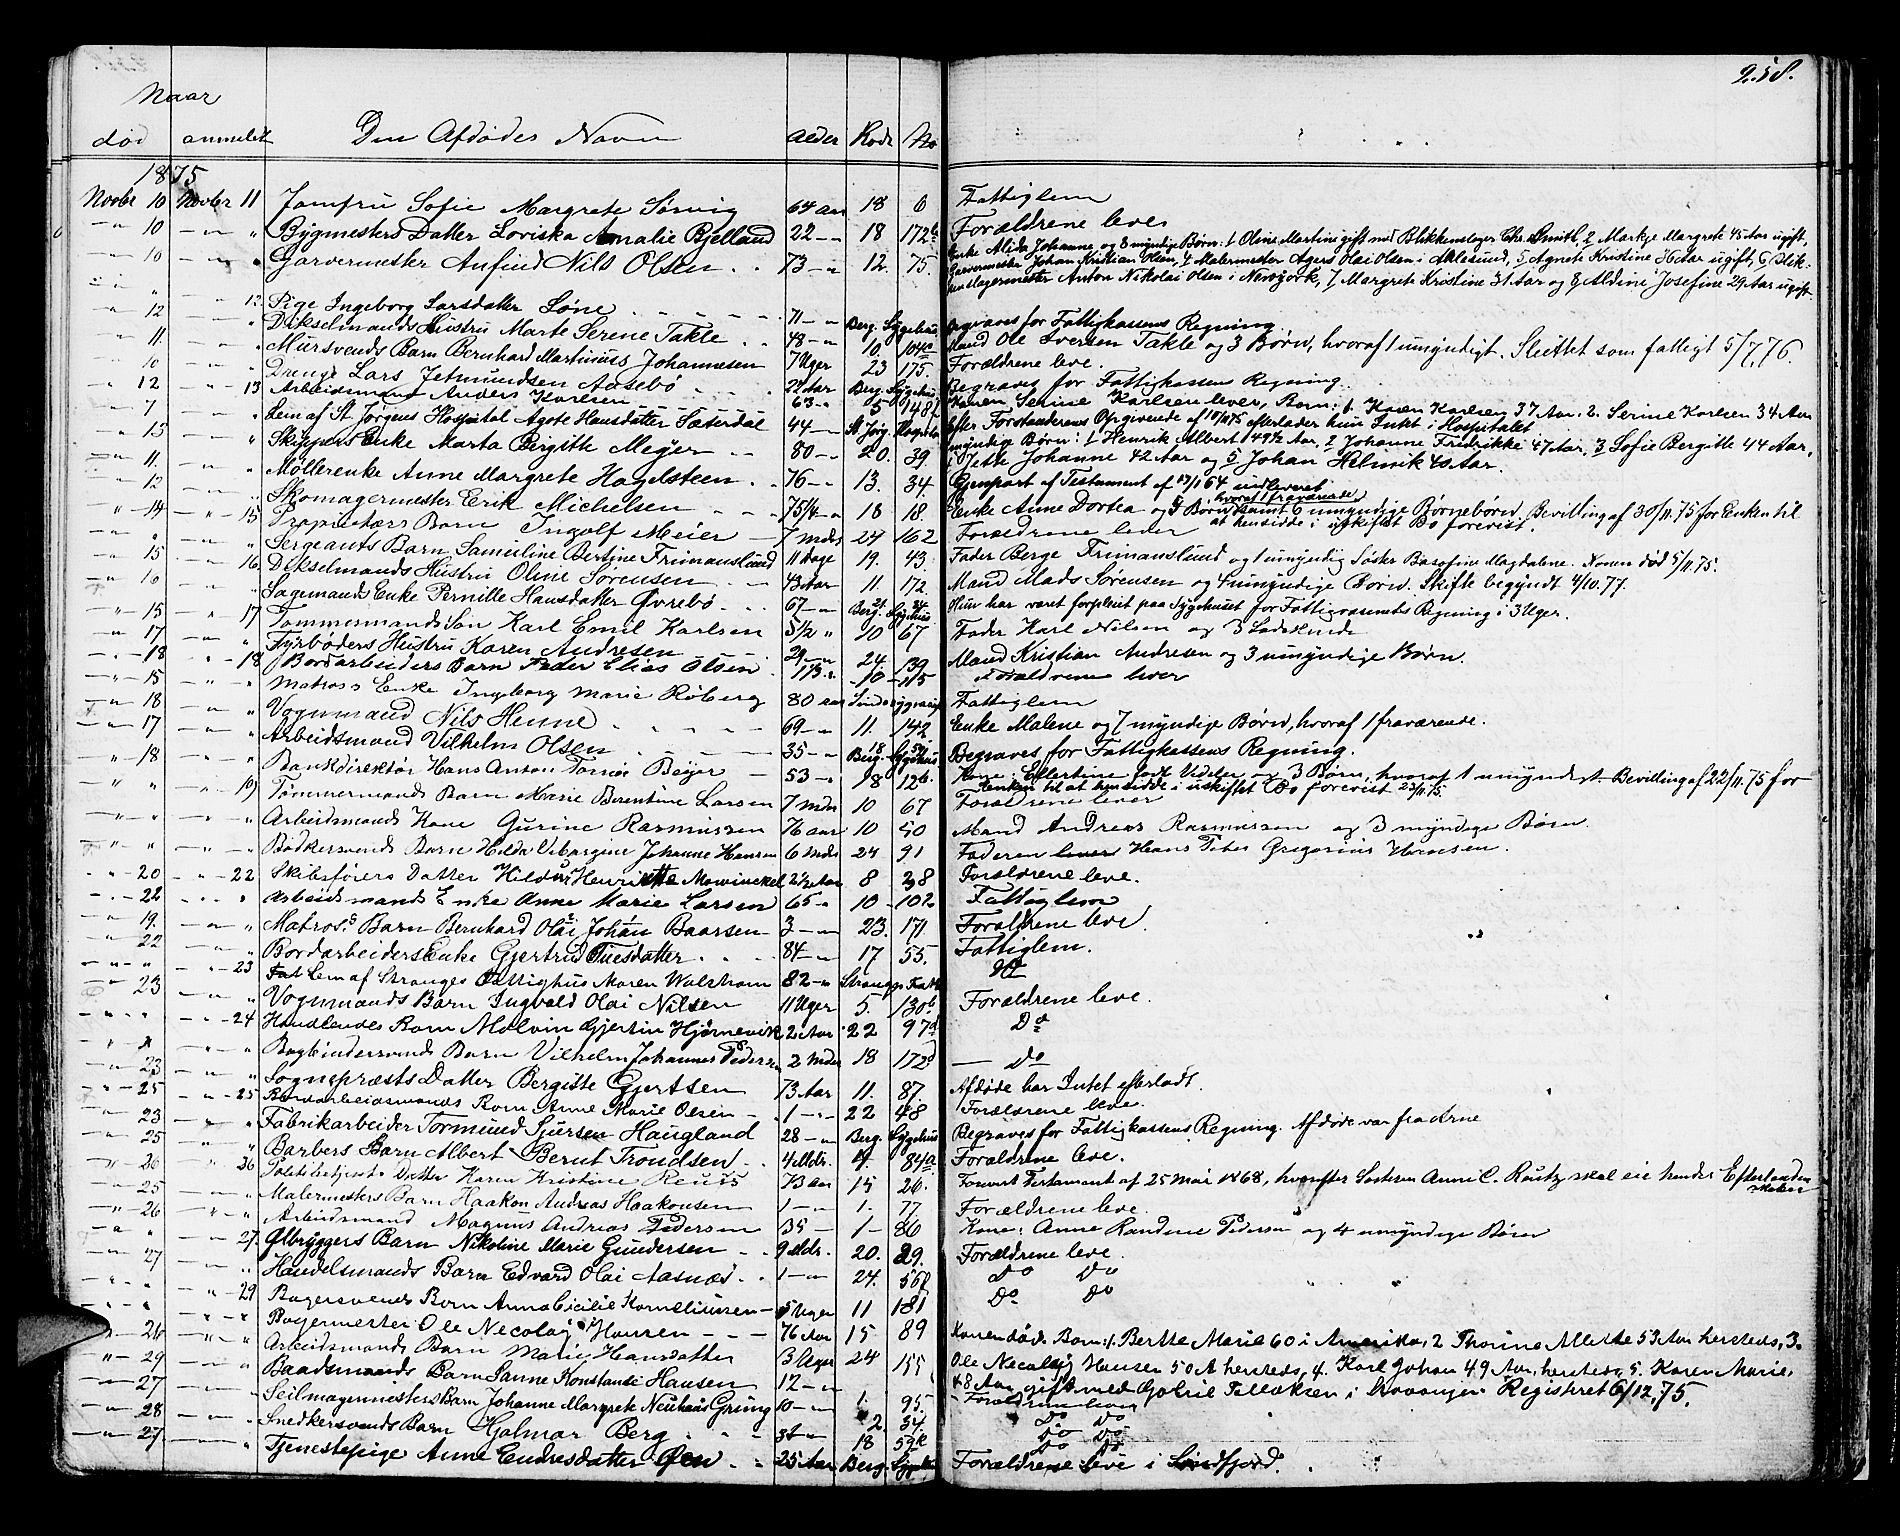 258.
Naar
død anmeldt Den Afdødes Navn Alder Rode No
1875
Novbr 10 Novbr 11 Jomfru Sofie Margrete Sørvig 64 Aar 18 6 Fattiglem
10 " Bygmesters Datter Loviska Amalie Bjelland 22 18 172b Forældrene leve
10 " Garvermester Anfind Nils Olsen 73 12. 75. Enke Alida Johanne og 8 myndige Børn: 1 Oline Martine gift med Blikkenslager Chr. Smith, 2 Markje Margrete 45 Aar ugift,
Garvermester Johan Kristian Olsen, 4 Malermester Agers Olai Olsen i Aalesund, 5 Agnete Kristine 36 Aar ugift, 6 Blik-
kenslagermester Anton Nikolai Olsen i Newyork, 7 Margrete Kristine 31 Aar og 8 Aldine Josefine 29 Aar ugift.
" 12. Pige Ingeborg Larsdatter Løne 71 Berg. Sygehus Begraves for Fattigkassens Regning
12 " Dikselmands Hustru Marte Serene Takle 48 10. 104a Mand Ole Iversen Takle og 3 Børn, hvoraf 1 umyndigt. Sluttet som fattigt 5/7.76.
11. " Mursvends Barn Bernhard Martinus Johannesen 7 Uger 23 175. Forældrene leve.
10 " Dreng Lars Jetmundsen Aasebø 2 Aar Berg. Sygehus Begraves for Fattigkassens Regning
12 13 Arbeidsmand Anders Karlsen 63 5 148 Konen Serine Karlsen lever, Børn: 1. Karen Karlsen 37 Aar. 2. Serine Karlsen 34 Aar
7 " Lem af St. Jørgens Hospital Agote Hansdatter Sæterdal 44 St Jørg. Hospital Efter Forstanderens Opgivende af 10/11 75 efterlader hun Intet i Hospitalet
13 " Skippers Enke Marta Birgitte Meyer 80 20. 39. myndige Børn: 1 Henrik Albert 49½ Aar, 2 Johanne Fredrikke 47 Aar, 3 Sofie Bergitte 44 Aar,
Jette Johanne 42 Aar og 5 Johan Helmik 40 Aar.
11. " Møllerenke Anne Margrete Hagelsteen 76 13. 34. Gjenpart af Testament af 17/1 64 indleveret
12 " Skomagermester Erik Michelsen 75¼ 18 18. Enke Anne Dortea og 5 Børn hvoraf 1 fraværende samt 6 umyndige Børnebørn. Bevilling af 30/11.75 for Enken til
at hensidde i uskiftet Bo forevist.
14 15 Proprietærs Barn Ingolf Meier 7 Mdr 24 162 Forældrene lever
" " Sergeants Barn Samuline Bertine Frimanslund 11 Dage 19. 43. Fader Berge Frimanslund og 1 umyndig Søster Basefine Magdalene. Konen død 5/11.75.
15 16. Dikselmands Hustru Oline Sørensen 43 Aar 11 172. Mand Mads Sørensen og 4 umyndige Børn. Skifte begyndt 4/10.77.
10 " Sagmands Enke Pernille Hansdatter Øvrebø 67 Berg. Sygehus Hun har været forpleiet paa Sygehuset for Fattigvæsenets Regning i 3 Uger.
15 17 Tømmermands Søn Karl Emil Karlsen 5½ " 10 67 Fader Karl Nilsen og 3 Sødskende
17 " Fyrbøders Hustru Karen Andresen 29 24. 139 Mand Kristian Andresen og 3 umyndige Børn.
18 18 Bordarbeiders Barn Peder Elias Olsen 1⅓ 10 115 Forældrene lever
15 " Matros Enke Ingeborg Marie Roberg 80 Aar Fattiglem
18 " Vognmand Nils Henne 69 11. 142 Enke Malene og 7 myndige Børn, hvoraf 1 fraværende.
17 " Arbeidsmand Vilhelm Olsen 35 Berg. Sygehus Begraves for Fattigkassens Regning.
18 " Bankdirektør Hans Anton Tornøe Beyer 53 18 126. Kone: Ellertine født Vedeler og 3 Børn, hvoraf 1 umyndigt. Bevilling af 22/11.75 for
Enken til at hensidde i uskiftet Bo forevist 23/11.75.
" 19 Tømmermands Barn Marie Berentine Larsen 7 Mdr 10 67 Forældrene lever
" " Arbeidsmands Kone Gurine Rasmussen 76 Aar 10 50 Mand Andreas Rasmussen og 3 myndige Børn.
" " Bødkersvends Barn Hilda Johanne Hansen 6 Mdr 24 91 Faderen Hans Peter Gregorius Hansen.
20 22 Skibsførers Datter Hildur Henriette Mowinckel 2½ Aar 8 28 Forældrene leve.
22 " Arbeidsmands Enke Anne Marie Larsen 65 10 102 Fattiglem
19. " Matros's Barn Bernhard Olai Johan Baarsen 3 23. 171 Forældrene leve
22 " Bordarbeiders Enke Gjertrud Tuesdatter 84 17 55. Fattiglem.
" 23 Lem af Stranges Fattighus Maren Walstrøm 82 Stranges Fatt. Do
23 " Vognmands Barn Ingvald Olai Nilsen 11 Uger 5. 130b Forældrene leve.
" 24 Handlendes Barn Malvin Gjertin Hjørnevik 2 Aar 22 97d Do
" " Bogbindersvends Barn Vilhelm Johannes Pedersen 2 Mdr 18 172d Do
23 " Sognepræsts Datter Bergitte Gjertsen 73 Aar 11. 87. Afdøde har Intet efterladt.
25 25 Bordarbeidsmands Barn Anne Marie Olsen 1 22 48 Forældrene leve.
23 " Fabrikarbeider Tormund Sjursen Haugland 28 Berg. Sygehus Begraves for Fattigkassens Regning. Afdøde var fra Arne
25 " Barbers Barn Albert Bernt Trondsen 4 Mdr. 9. 84a Forældrene leve.
26 26 Politibetjents Datter Karen Kristine Reuss 73 Aar 15 26. Forevist Testament af 25 Mai 1868, hvorefter Søsteren Anne C. Rautz skal eie hendes Efterladenskaber
25 " Malermesters Barn Haakon Andreas Haakonsen 1 1. 77. Forældrene leve.
26 " Arbeidsmand Magnus Andreas Pedersen 35 1 86 Kone: Anne Randine Pedersen og 4 umyndige Børn
" 27. Ølbryggers Barn Nikoline Marie Gundersen 9 Mdr. 20. 29. Forældrene leve.
27 " Handelsmands Barn Edvard Olai Aasnæs 1 24. 56 Do Do
" 29 Bagersvends Barn Anna Cicilie Korneliusen 5 Uger 11 181 Do Do
" " Bagermester Ole Necolay Hansen 76 Aar 15 89 Konen død. Børn: 1. Berthe Marie 60 i Amerika, 2 Thorine Alette 53 Aar hersteds, 3.
26 " Arbeidsmands Barn Marie Hansdatter 3 Uger 24 155 Ole Necolay Hansen 50 A hersteds, 4. Karl Johan 49 Aar, hersteds, 5. Karen Marie,
29 " Baadsmands Barn Sanne Konstanse Hansen 12 1. 95. 48 Aar gift med Gabriel Tellaksen i Stavanger. Registret 6/12.75.
27 " Seilmagermesters Barn Johanne Margrete Neuhaus Grung 10 2 34. Forældrene lever
28 " Snedkersvends Barn Hjalmar Berg 3 18 59 Do Do
Do Do
27. " Tjenestepige Anne Endresdatter Øen 25 Aar Berg. Sygehus Forældrene leve i Søndfjord.